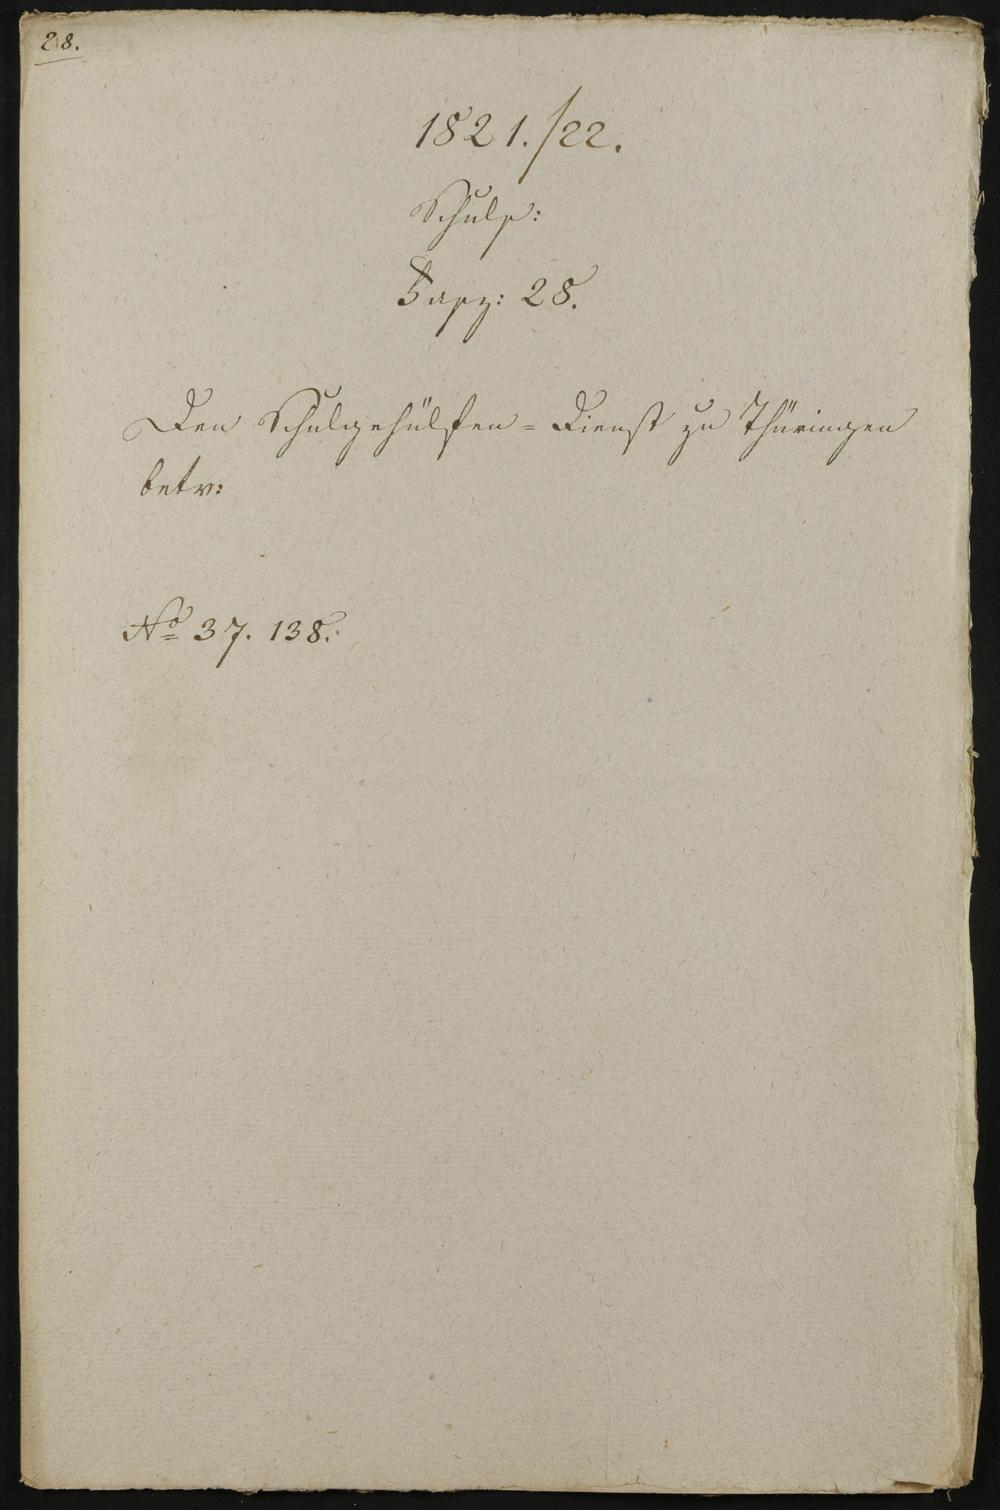 28.
1821./22.
Schule:
Fasz: 28.
Den Schulgehülfen=Dienst zu Thüringen
betr:
No 37. 138.